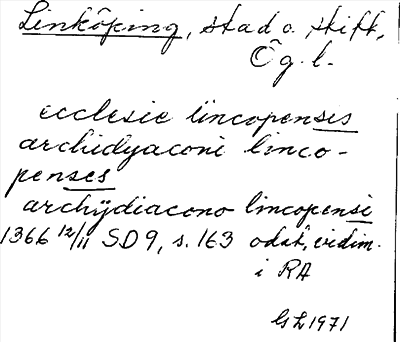 Linköping, stad o. stift,
Ög. l.
ecclesie lincopenses
archidyaconi linco-
penses
archydiacono lincopensi
1366 12/11 SD 9, s. 163 odat. vidim.
i RA
GL 1971